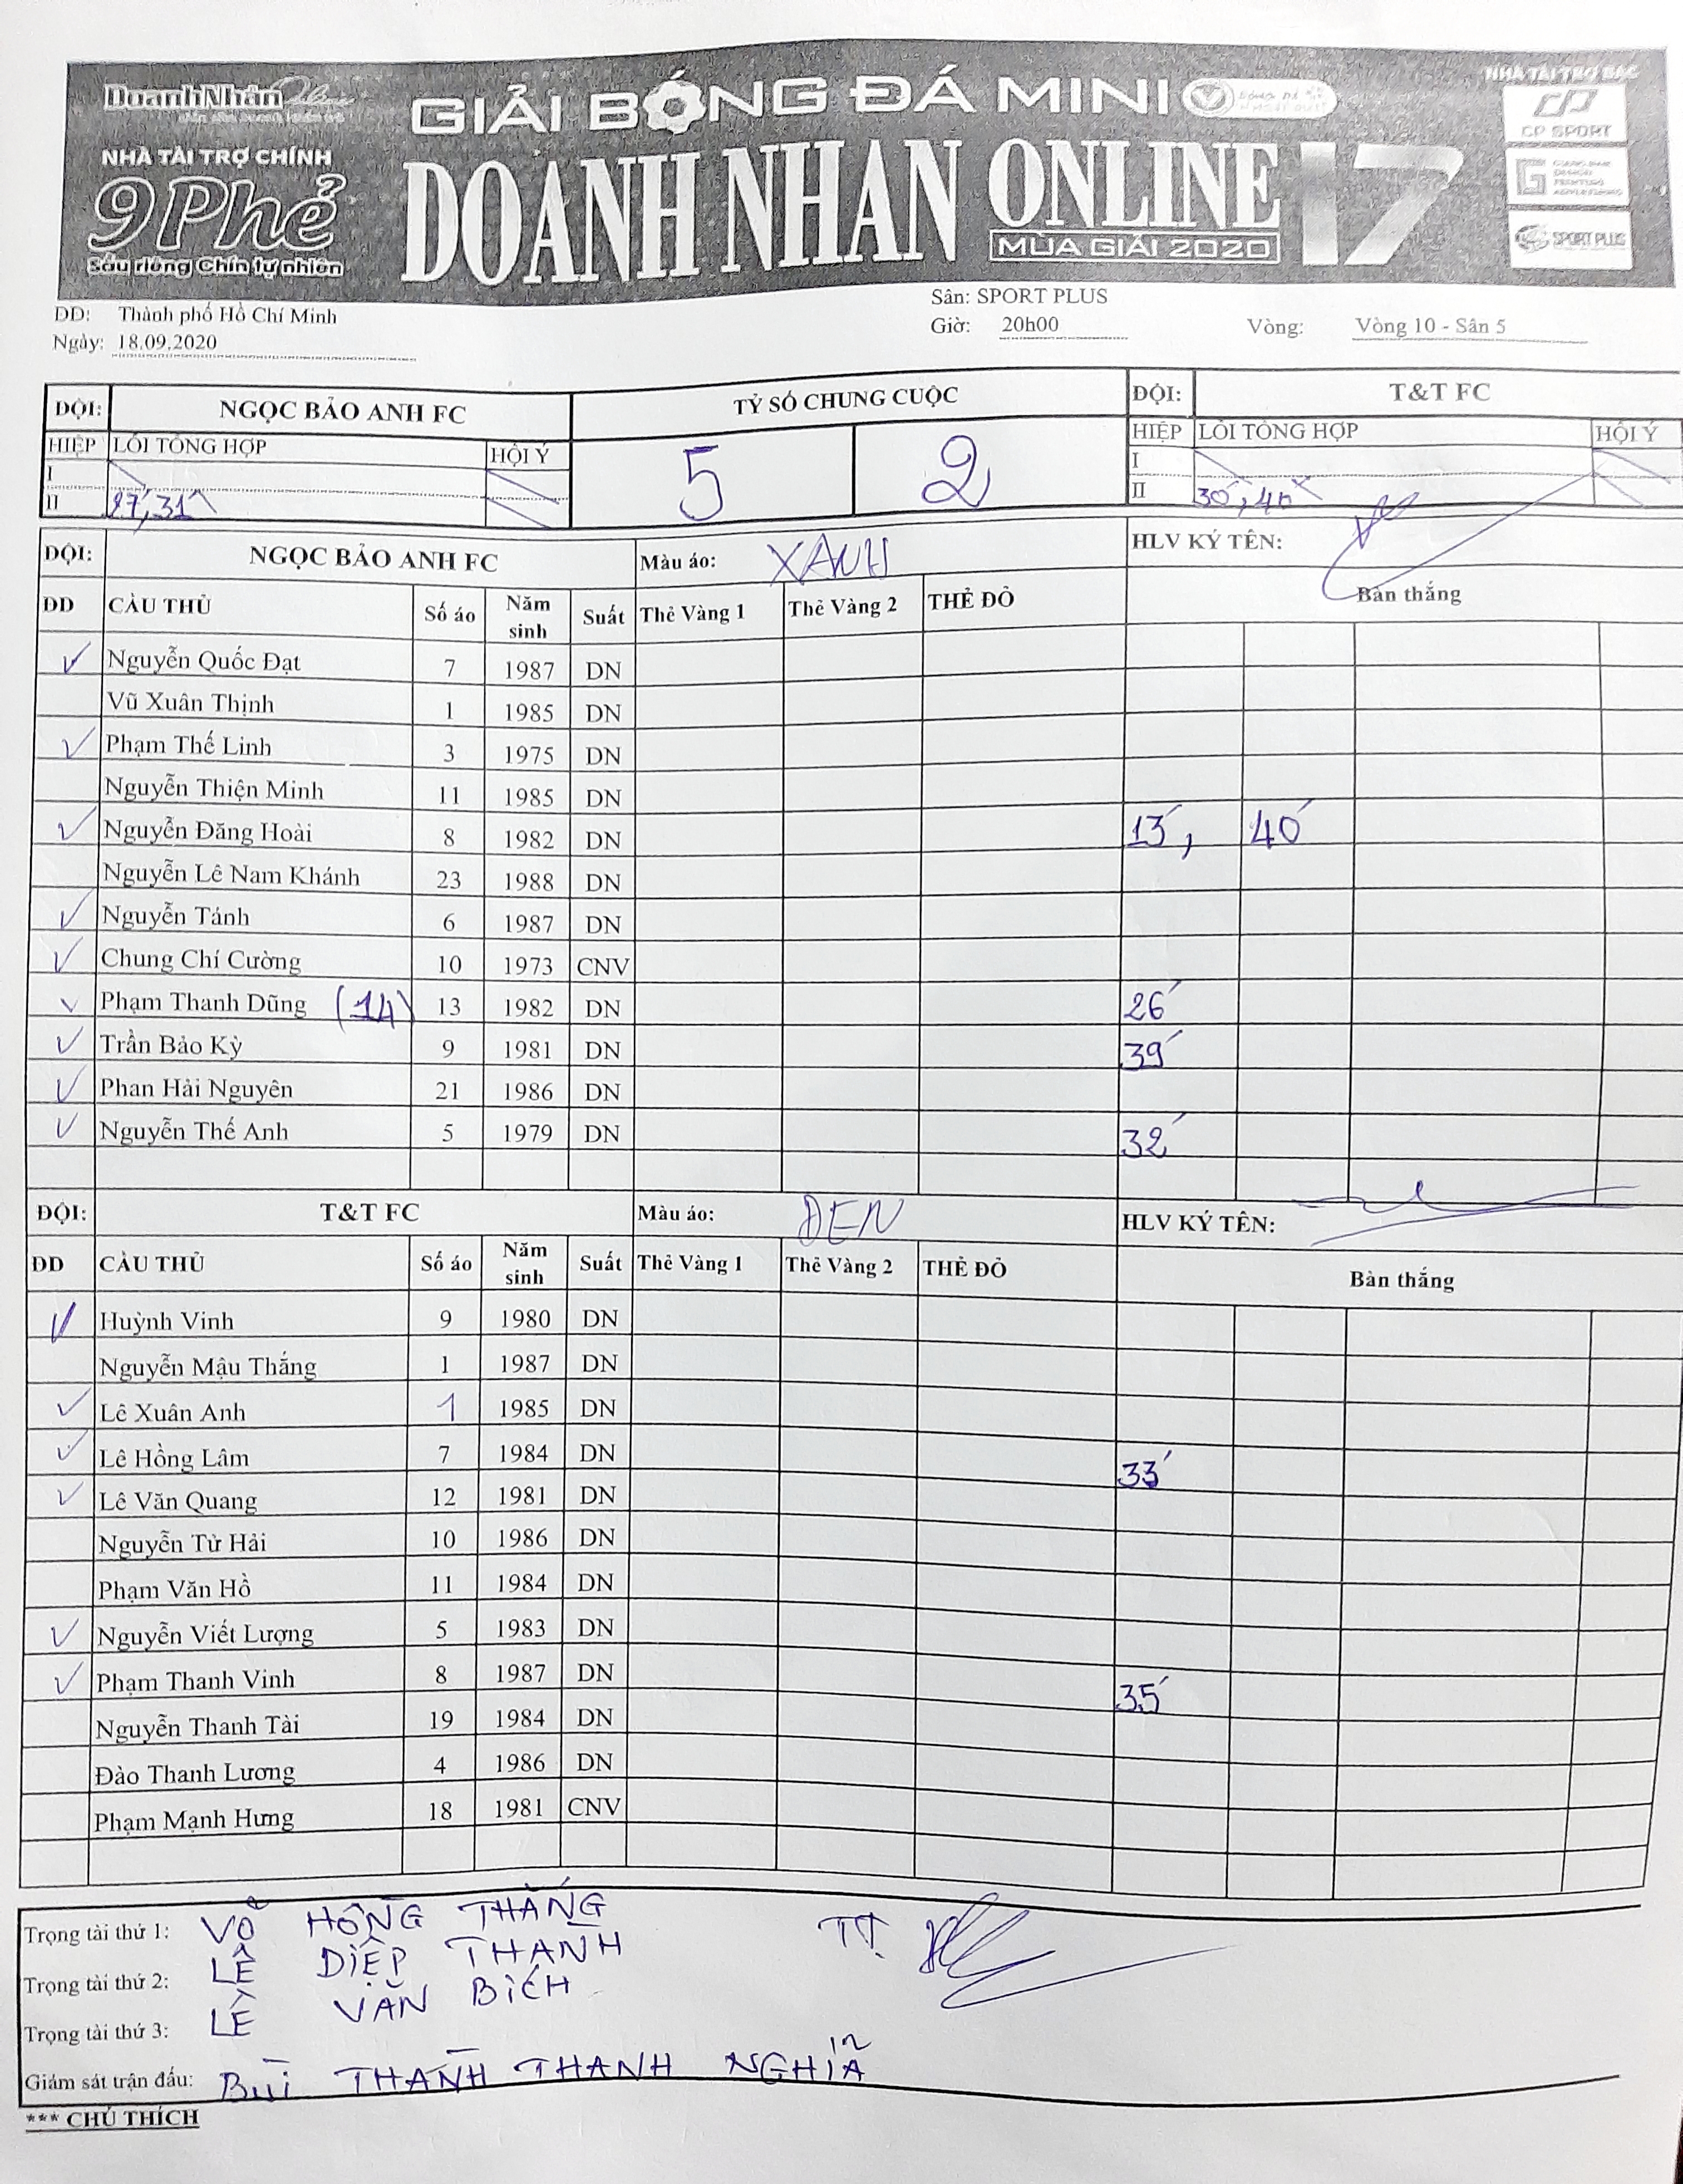 DoanhNhân Online
GIẢI BÓNG ĐÁ MINI
NHÀ TÀI TRỢ BẠC
NHÀ TÀI TRỢ CHÍNH
DOANH NHÂN ONLINE 17
CP SPORT
9Phẻ
Sầu riêng Chín tự nhiên
MÙA GIẢI 2020
SPORT PLUS
DD: Thành phố Hồ Chí Minh
Sân: SPORT PLUS
Ngày: 18.09.2020
Giờ: 20h00 Vòng: Vòng 10 - Sân 5
ĐỘI: NGỌC BẢO ANH FC TỶ SỐ CHUNG CUỘC ĐỘI: T&T FC
HIỆP LỖI TỔNG HỢP HỘI Ý 5 2 HIỆP LỖI TỔNG HỢP HỘI Ý
I I
II 27', 31' II 30', 40'
ĐỘI: NGỌC BẢO ANH FC Màu áo: XANH HLV KÝ TÊN:
DD CẦU THỦ Số áo Năm sinh Suất Thẻ Vàng 1 Thẻ Vàng 2 THẺ ĐỎ Bàn thắng
Nguyễn Quốc Đạt 7 1987 DN
Vũ Xuân Thịnh 1 1985 DN
Phạm Thế Linh 3 1975 DN
Nguyễn Thiện Minh 11 1985 DN
Nguyễn Đăng Hoài 8 1982 DN 13', 40'
Nguyễn Lê Nam Khánh 23 1988 DN
Nguyễn Tánh 6 1987 DN
Chung Chí Cường 10 1973 CNV
Phạm Thanh Dũng (14) 13 1982 DN 26'
Trần Bảo Kỳ 9 1981 DN 39'
Phan Hải Nguyên 21 1986 DN
Nguyễn Thế Anh 5 1979 DN 32'
ĐỘI: T&T FC Màu áo: ĐEN HLV KÝ TÊN:
DD CẦU THỦ Số áo Năm sinh Suất Thẻ Vàng 1 Thẻ Vàng 2 THẺ ĐỎ Bàn thắng
Huỳnh Vinh 9 1980 DN
Nguyễn Mậu Thắng 1 1987 DN
Lê Xuân Anh 1 1985 DN
Lê Hồng Lâm 7 1984 DN 33'
Lê Văn Quang 12 1981 DN
Nguyễn Từ Hải 10 1986 DN
Phạm Văn Hồ 11 1984 DN
Nguyễn Viết Lượng 5 1983 DN
Phạm Thanh Vinh 8 1987 DN 35'
Nguyễn Thanh Tài 19 1984 DN
Đào Thanh Lương 4 1986 DN
Phạm Mạnh Hưng 18 1981 CNV
Trọng tài thứ 1: VÕ HỒNG THẮNG TT
Trọng tài thứ 2: LÊ DIỆP THANH
Trọng tài thứ 3: LÊ VĂN BÍCH
Giám sát trận đấu: BÙI THANH THANH NGHĨA
*** CHÚ THÍCH